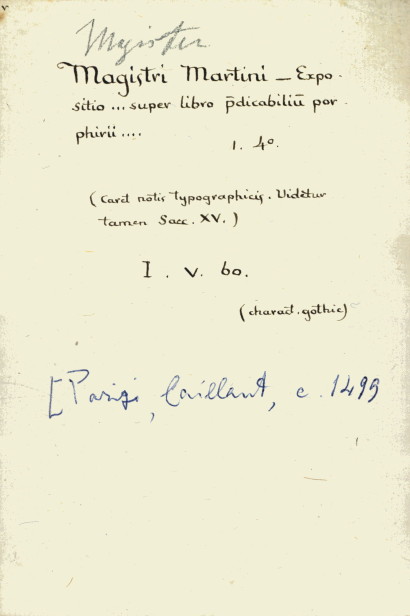 Magister
Magistri Martini – Expo-
sitio ... super libro p̄dicabiliū por-
phirii ....
1. 4º.
(Caret notis typographicis. Videtur
tamen Saec. XV.)
I. V. 60.
(charact. gothic)
[Parigi, Caillaut, c. 1499